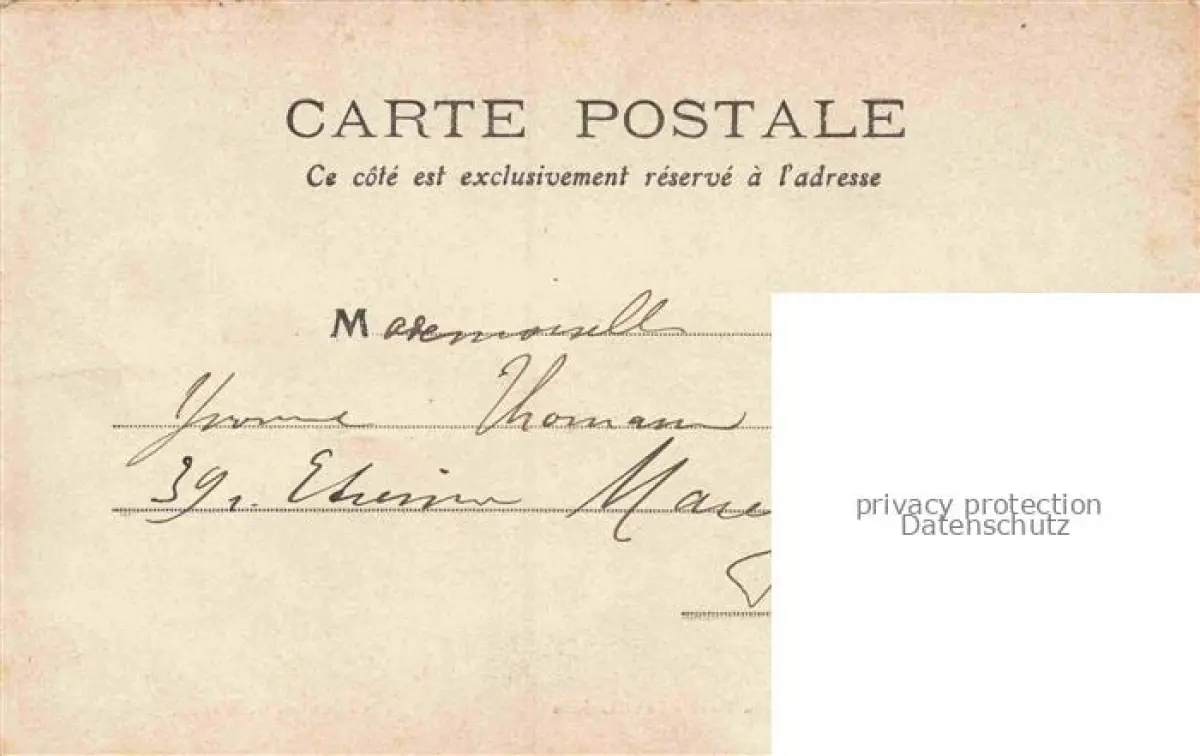 CARTE POSTALE
Ce côté est exclusivement réservé à l'adresse
Mademoiselle
Yvonne Thomann
39 r. Etienne
privacy protection
Datenschutz